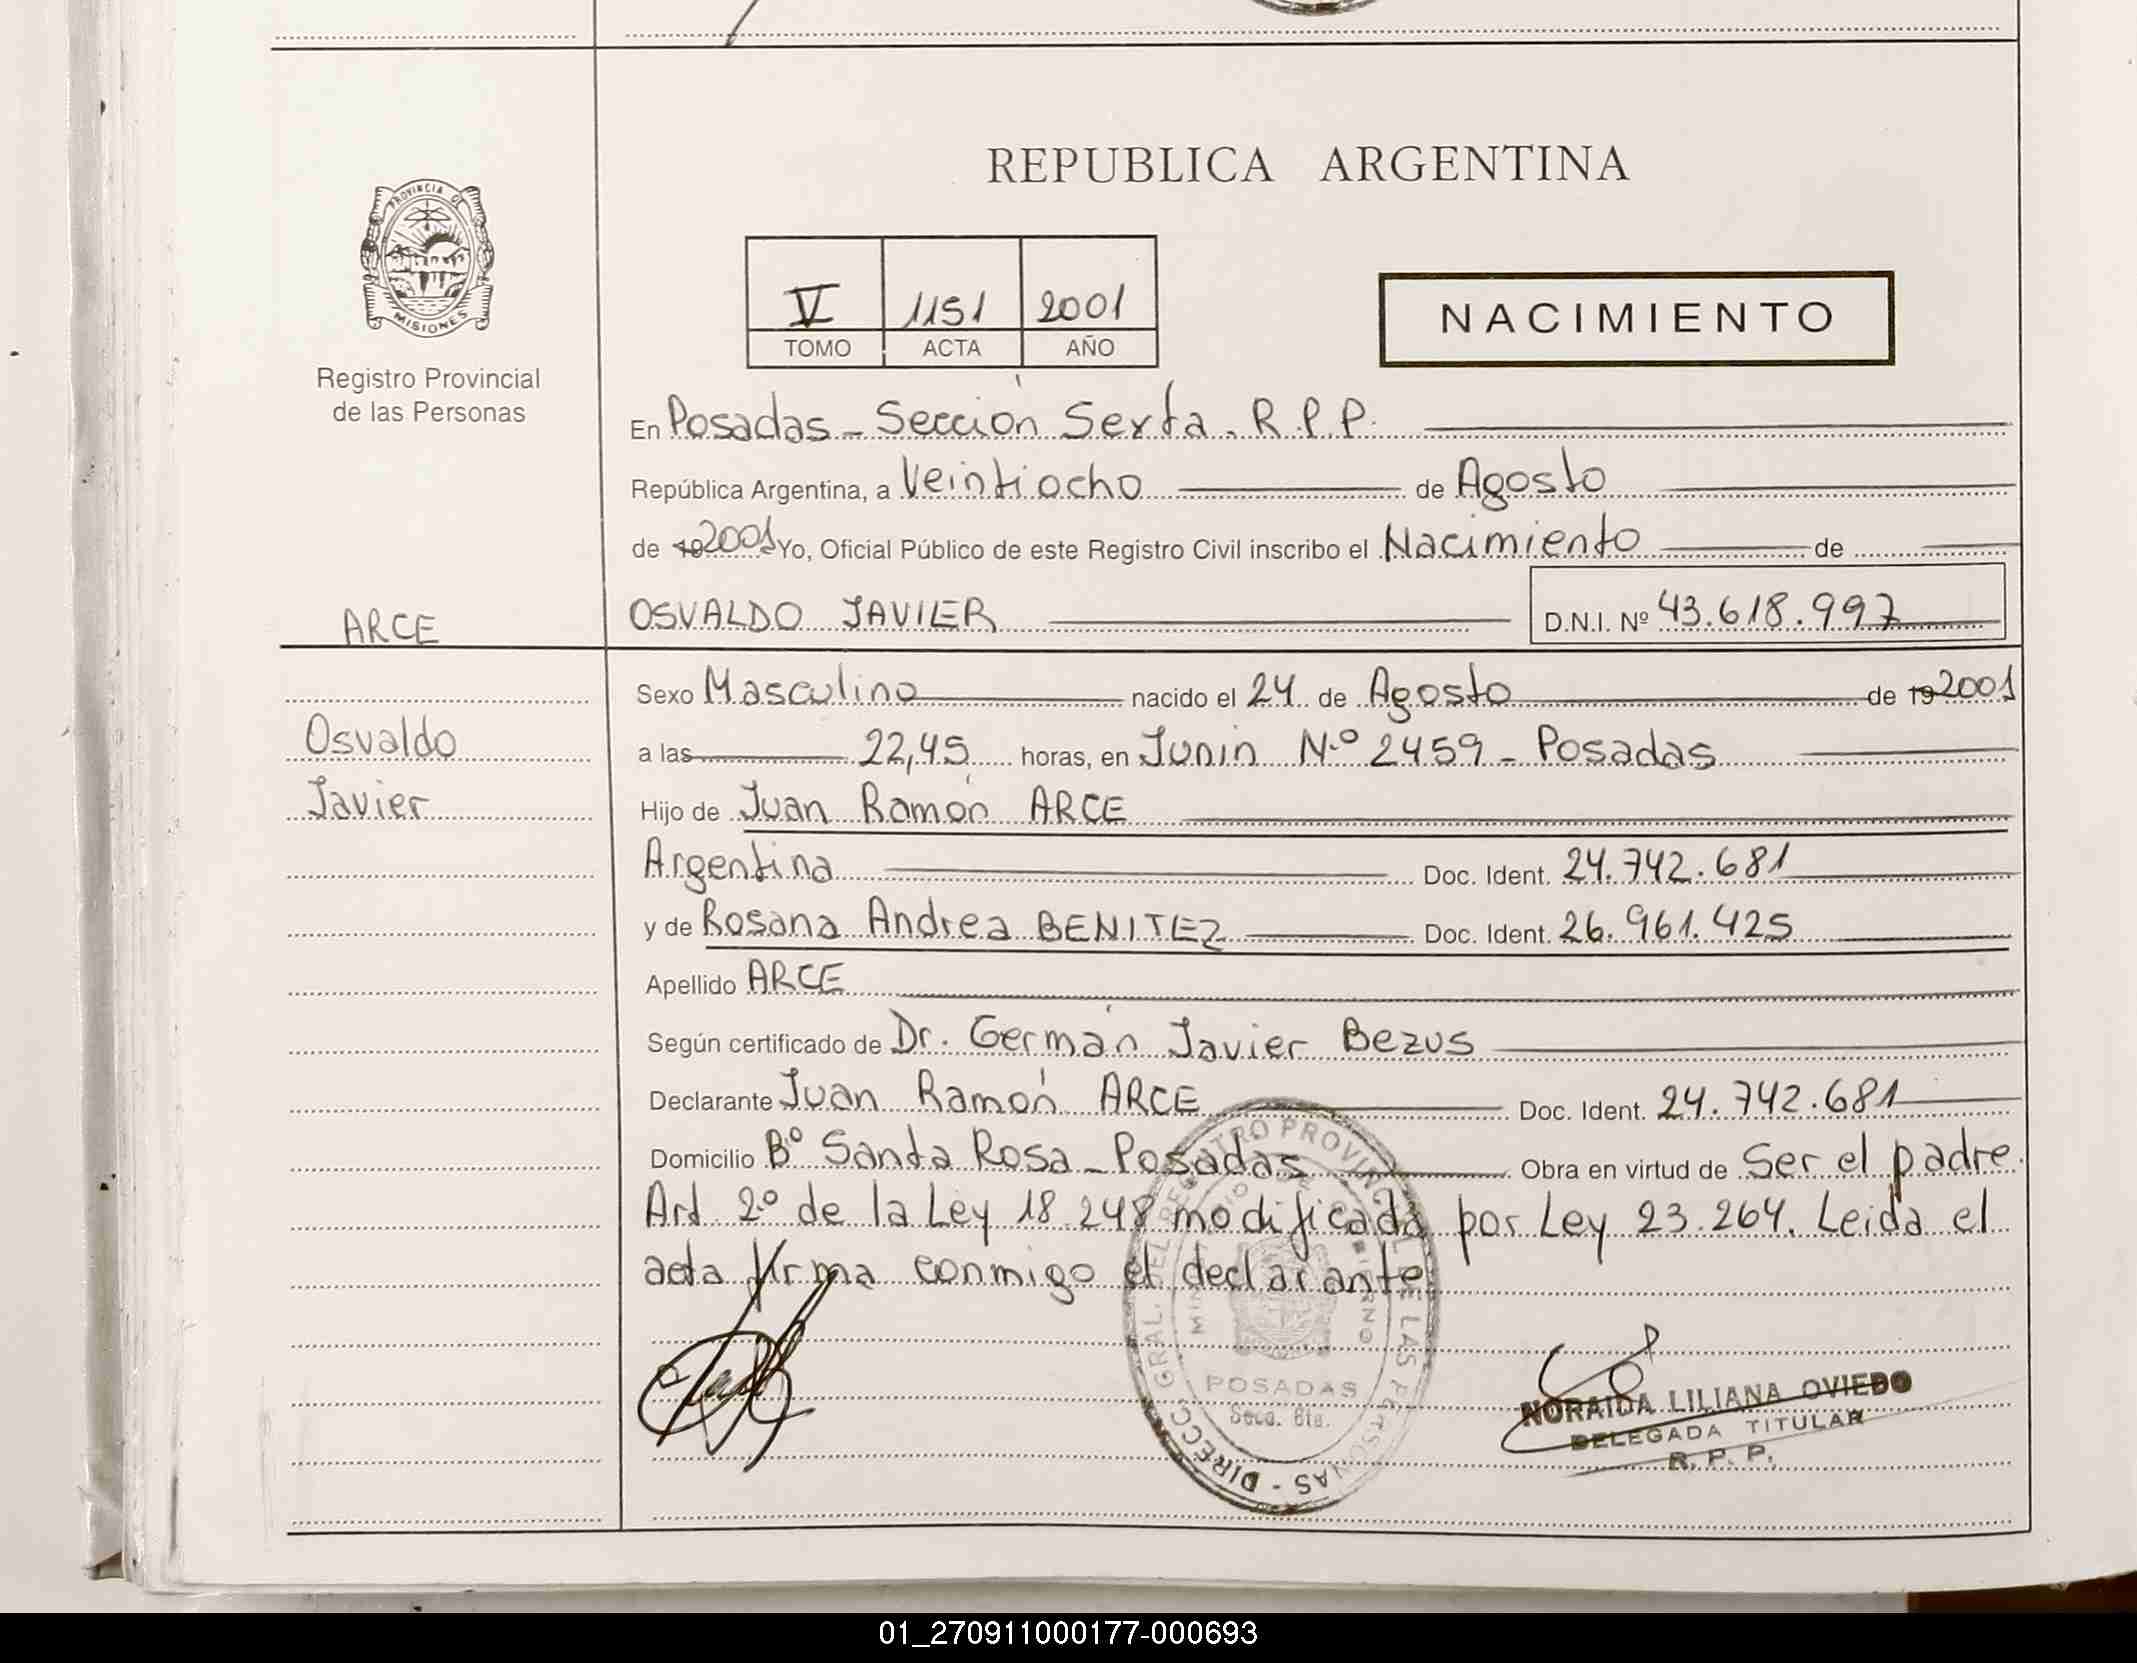 REPUBLICA ARGENTINA
PROVINCIA DE
MISIONES
Registro Provincial
de las Personas
V 1151 2001
TOMO ACTA AÑO
NACIMIENTO
En Posadas - Sección Sexta. R.P.P.
República Argentina, a Veintiocho de Agosto
de 19 2001 Yo, Oficial Público de este Registro Civil inscribo el Nacimiento de
ARCE
OSVALDO JAVIER D.N.I. Nº 43.618.997
Sexo Masculino nacido el 24 de Agosto de 19 2001
Osvaldo
Javier
a las 22,45 horas, en Junin N.º 2459 - Posadas
Hijo de Juan Ramón ARCE
Argentina Doc. Ident. 24.742.681
y de Rosana Andrea BENITEZ Doc. Ident. 26.961.425
Apellido ARCE
Según certificado de Dr. Germán Javier Bezus
Declarante Juan Ramón ARCE Doc. Ident. 24.742.681
Domicilio Bº Santa Rosa - Posadas Obra en virtud de Ser el padre.
Art 2º de la Ley 18.248 modificada por Ley 23.264. Leida el
acta firma conmigo el declarante
DIRECC. GRAL. DEL REGISTRO PROVINCIAL DE LAS PERSONAS -
POSADAS
Secc. 6ta.
NORAIDA LILIANA OVIEDO
DELEGADA TITULAR
R. P. P.
01_270911000177-000693